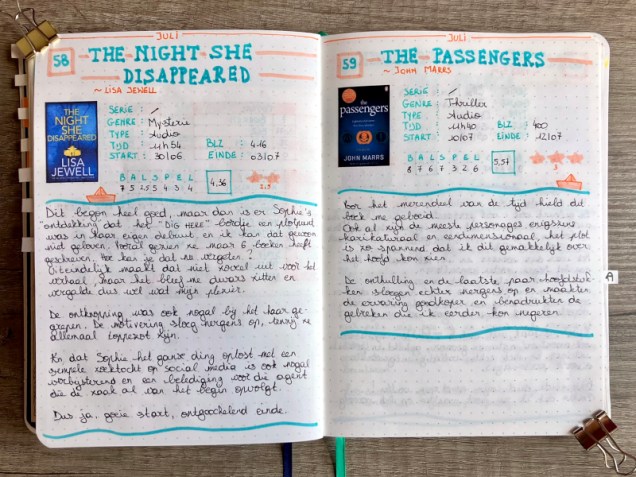 JULI
58
THE NIGHT SHE
DISAPPEARED
~ LISA JEWELL
THE
NIGHT
SHE
DISAPPEARED
LISA
JEWELL
SERIE : /
GENRE : Mysterie
TYPE : Audio
TIJD : 11h54 BLZ : 416
START : 30/06 EINDE : 03/07
B A L S P E L
4.36
Dit begon heel goed, maar dan is er Sophie's
"ontdekking dat het "DIG HERE" bordje een plotpunt
was in haar eigen debuut, en ik kan dat gewoon
niet geloven. Vooral gezien ze maar 6 boeken heeft
geschreven. Hoe kan je dat nu vergeten?
Uiteindelijk maakt dat niet zoveel uit voor het
verhaal, maar het bleef me dwars zitten en
vergalde dus wel wat mijn plezier.
De ontknoping was ook nogal bij het haar ge-
grepen. De motivering sloeg nergens op, tenzij ze
allemaal complexot zijn.
En dat Sophie het ganse ding oplost met een
simpele zoektocht op social media is ook nogal
verbijsterend en een belediging voor die agent
die de zaak al van het begin opvolgt.
Dus ja, goeie start, ontgoochelend einde.
JULI
59
THE PASSENGERS
~ JOHN MARRS
the
passengers
JOHN MARRS
SERIE : /
GENRE : Thriller
TYPE : Audio
TIJD : 11h40 BLZ : 400
START : 10/07 EINDE : 12/07
B A L S P E L
8 7 6 7 3 2 6
5,57
3
Voor het merendeel van de tijd hield dit
boek me geboeid.
Ook al zijn de meeste personages enigszins
karikaturaal en eendimensionaal, het plot
is zo spannend dat ik dit gemakkelijk over
het hoofd kon zien.
De onthulling en de laatste paar hoofdstuk-
ken sloegen echter nergens op en maakten
de ervaring goedkoper en benadrukten de
gebreken die ik eerder kon negeren.
A